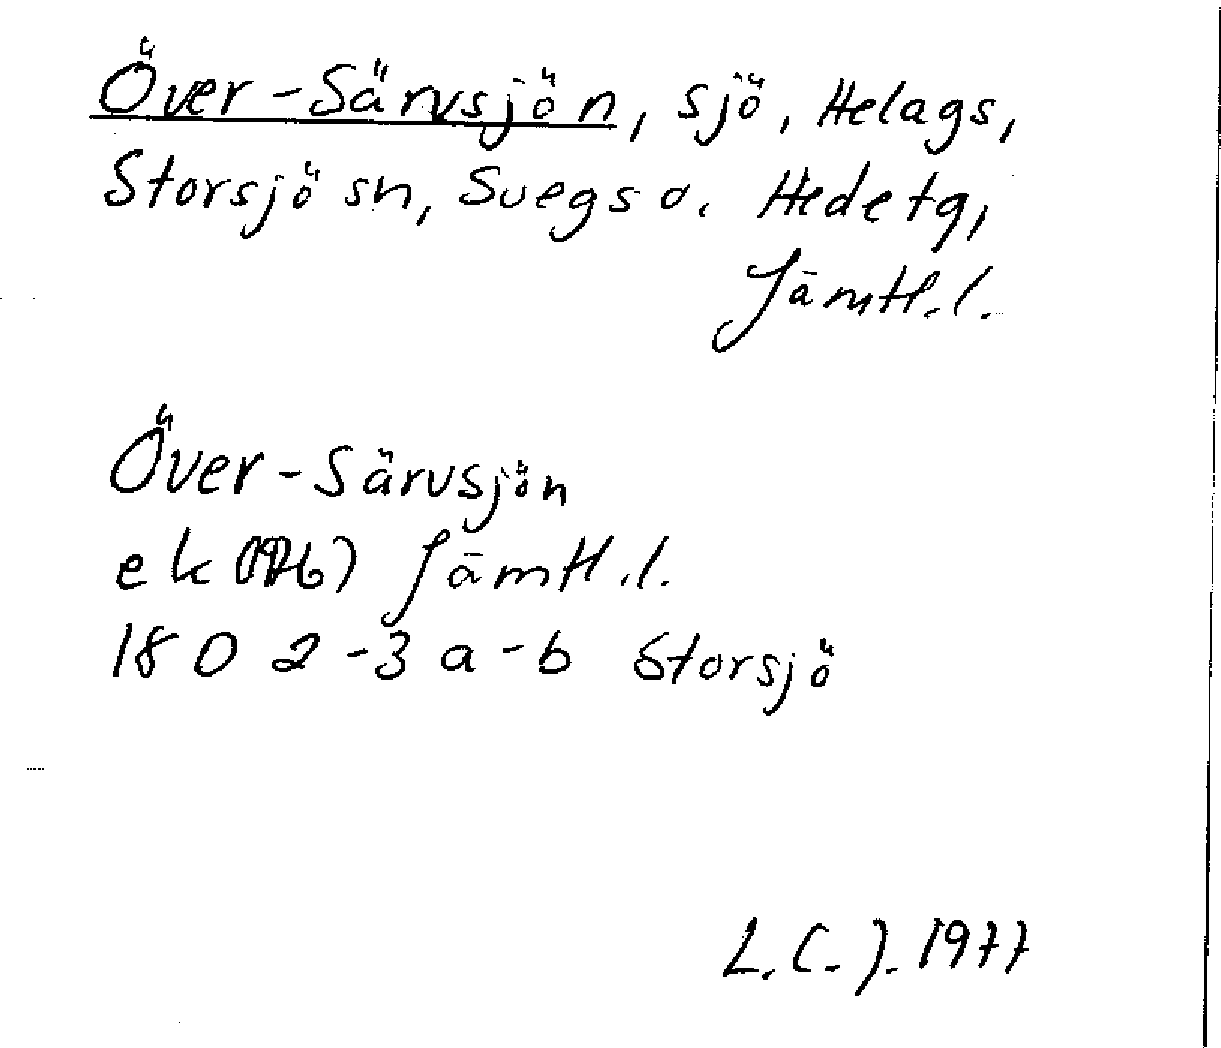 Över-Särvsjön, sjö, Helags,
Storsjö sn, Svegs o. Hede tg,
Jämtl.l.
Över-Särvsjön
ek Jämtl.l.
18 D 2-3 a-b Storsjö
L.C.J. 1977